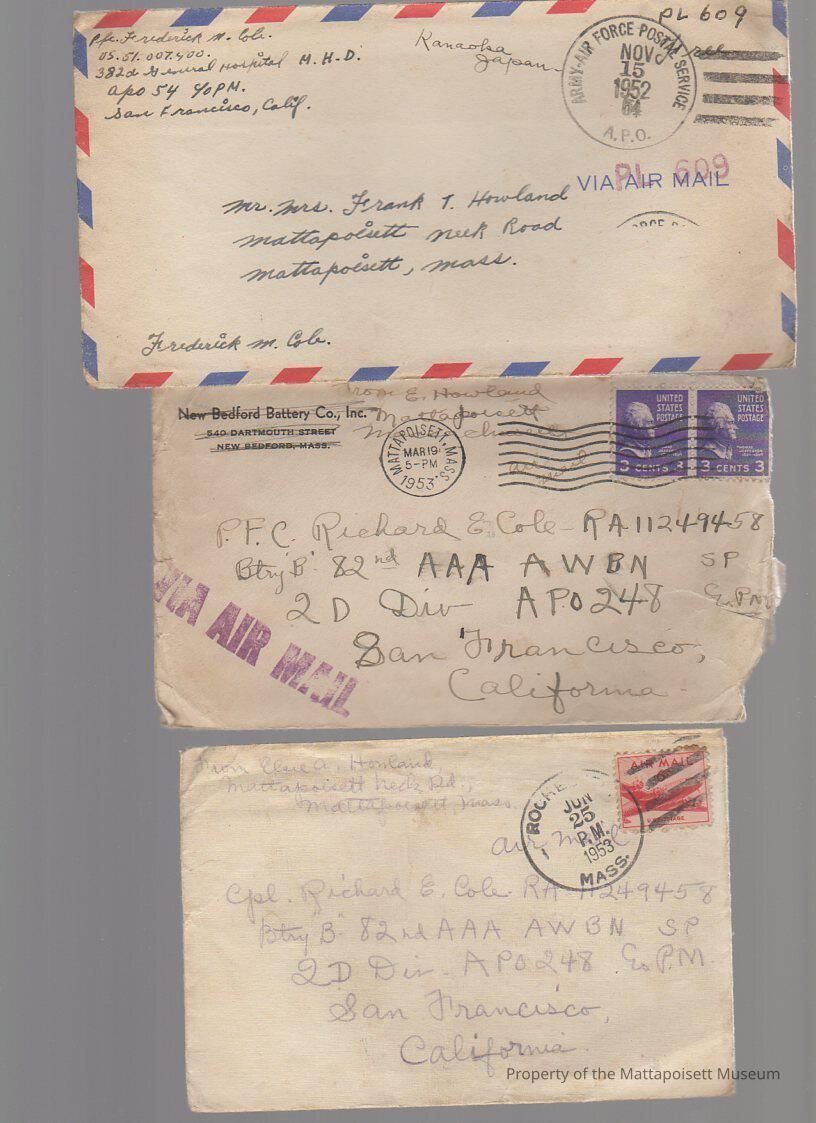 Pfc. Frederick M. Cole.
US. 51. 007. 400.
382d General Hospital M. H. D.
apo 54 % PM.
San Francisco, Calif.
Kanaoka
Japan
PL 609
ARMY-AIR FORCE POSTAL SERVICE
NOV
15
1952
A.P.O.
PL 609
VIA AIR MAIL
Mr. Mrs. Frank T. Howland
Mattapoisett Neck Road
Mattapoisett, Mass.
Frederick M. Cole.
From E. Howland
Mattapoisett
New Bedford Battery Co., Inc.
540 DARTMOUTH STREET
NEW BEDFORD, MASS.
MATTAPOISETT, MASS.
MAR 19
5-PM
1953
air
mail
UNITED
STATES
POSTAGE
3 CENTS 3
UNITED
STATES
POSTAGE
THOMAS
JEFFERSON
3 CENTS 3
P.F.C. Richard E. Cole - RA 11249458
Btry "B" 82nd AAA AWBN SP
2 D Div APO 248
San Francisco,
California
VIA AIR MAIL
From Elsie A. Howland,
Mattapoisett Neck Rd.,
Mattapoisett, Mass.
MASS.
JUN
25
P.M.
1953
AIR MAIL
air mail
Cpl. Richard E. Cole - RA 11249458
Btry "B" 82nd AAA AWBN SP
2 D Div - APO 248 % P.M.
San Francisco,
California
Property of the Mattapoisett Museum